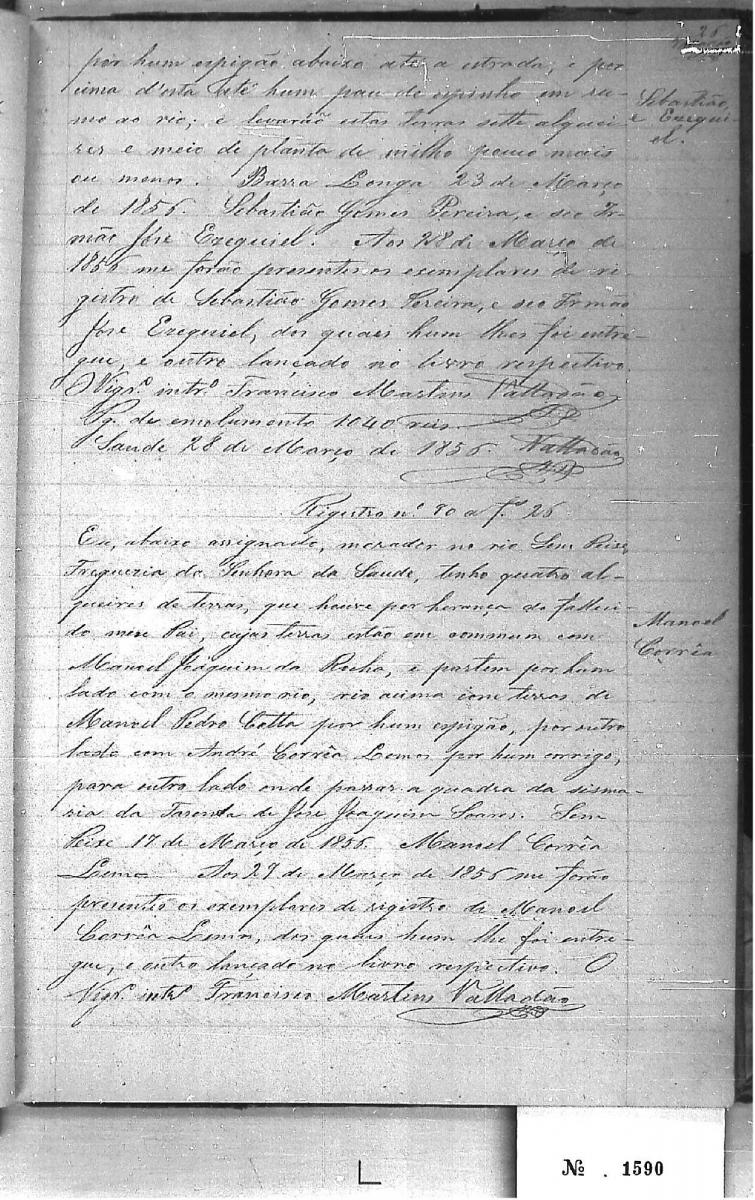 26
por hum espigão abaixo até a estrada, e por
cima d'esta até hum pau de espinho em ru-
mo ao rio; e levarão estas terras sette alquei-
res e meio de planta de milho pouco mais
ou menos. Barra Longa 23 de Março
de 1856. Sebastião Gomes Pereira, e seo Ir-
mão José Ezequiel. Aos 28 de Março de
1856 me forão presentes os exemplares de re-
gistro de Sebastião Gomes Pereira, e seo Irmão
José Ezequiel, dos quaes hum lhes foi entre-
gue, e outro lançado no livro respectivo.
O Vigr.º intr.º Francisco Martins Valladão
Pg. de emolumento 1040 reis.
Saude 28 de Março de 1856. Valladão
Sebastião,
e Ezequi-
el.
Registro nº 80 a f. 26
Eu, abaixo assignado, morador no rio Sem Peixe,
Freguezia da Senhora da Saude, tenho quatro al-
queires de terras, que houve por herança do falleci-
do meu Pai, cujas terras estão em commum com
Manoel Joaquim da Rocha, e partem por hum
lado com o mesmo rio, rio acima com terras de
Manoel Pedro Cotta por hum espigão, por outro
lado com André Corrêa Lemos por hum corrigo,
para outro lado onde passar a quadra da sisma-
ria da Fazenda de José Joaquim Soares. Sem
Peixe 17 de Março de 1856. Manoel Corrêa
Lemos Aos 29 de Março de 1856 me forão
presentes os exemplares de registro de Manoel
Corrêa Lemos, dos quaes hum lhe foi entre-
gue, e outro lançado no livro respectivo. O
Vigr.º intr.º Francisco Martins Valladão
Manoel
Corrêa
№ . 1590